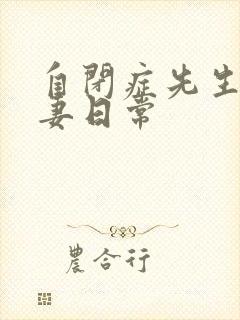 自閉症先生
妻日常
農合行